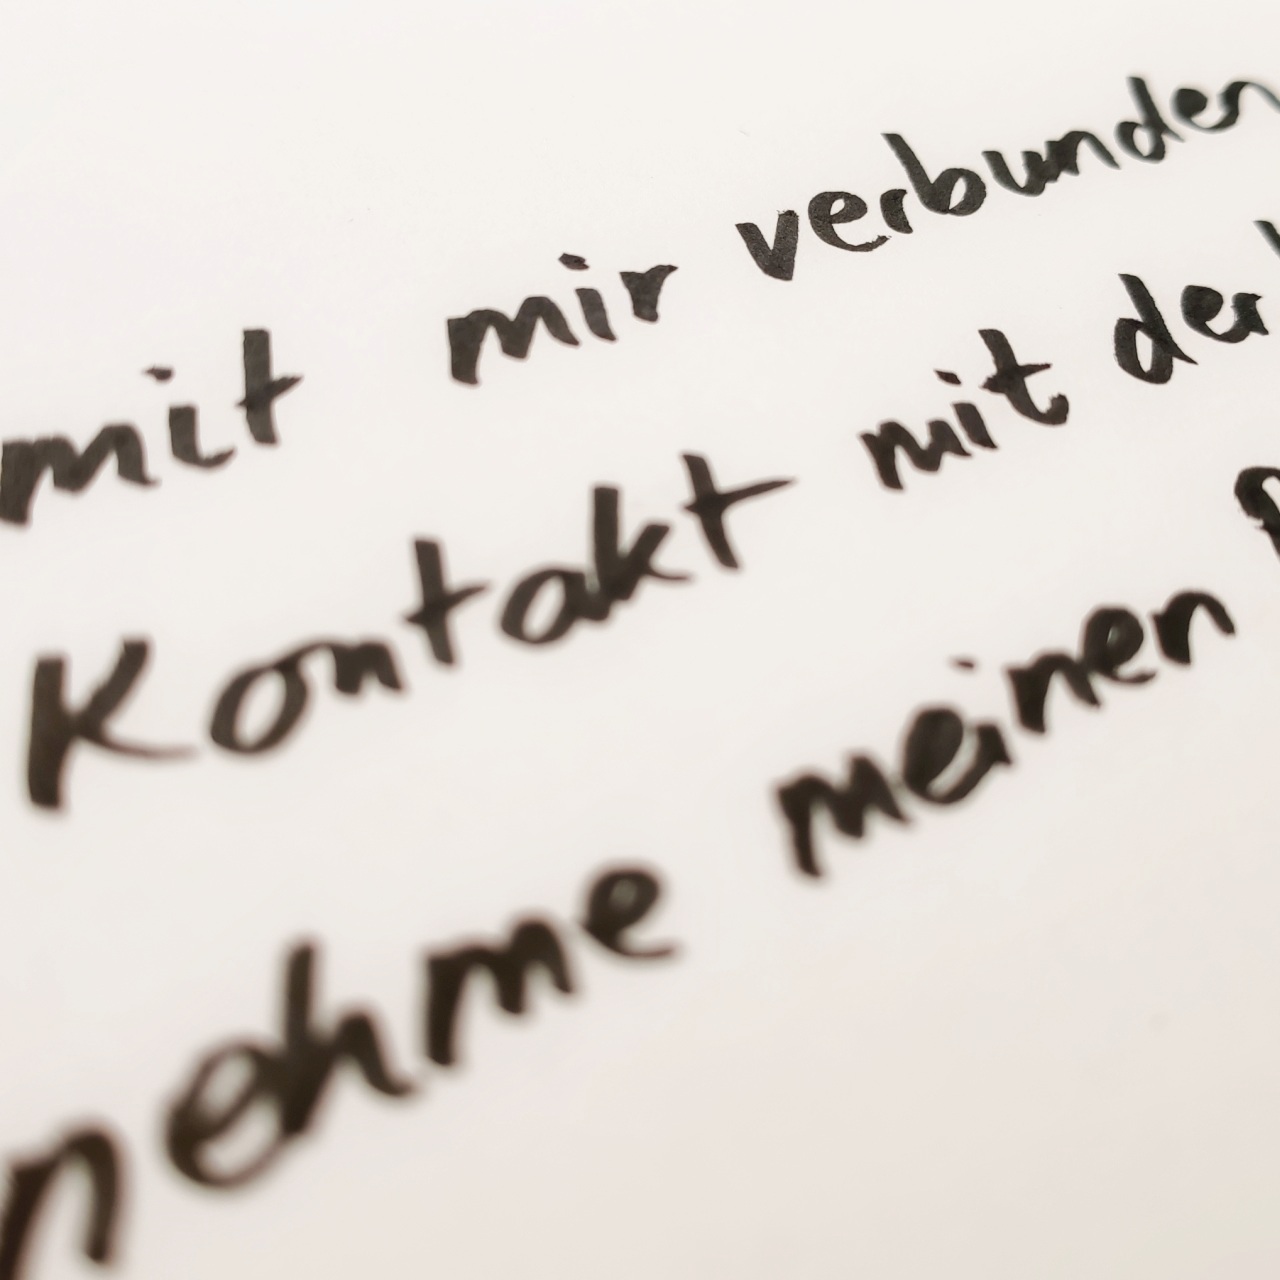 mit mir verbunden
Kontakt mit der
nehme meinen